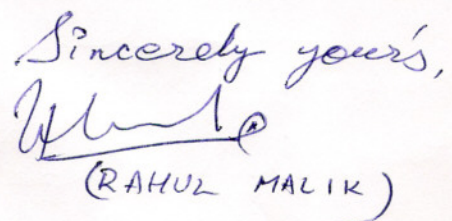 Sincerely your's,
(RAHUL MALIK)